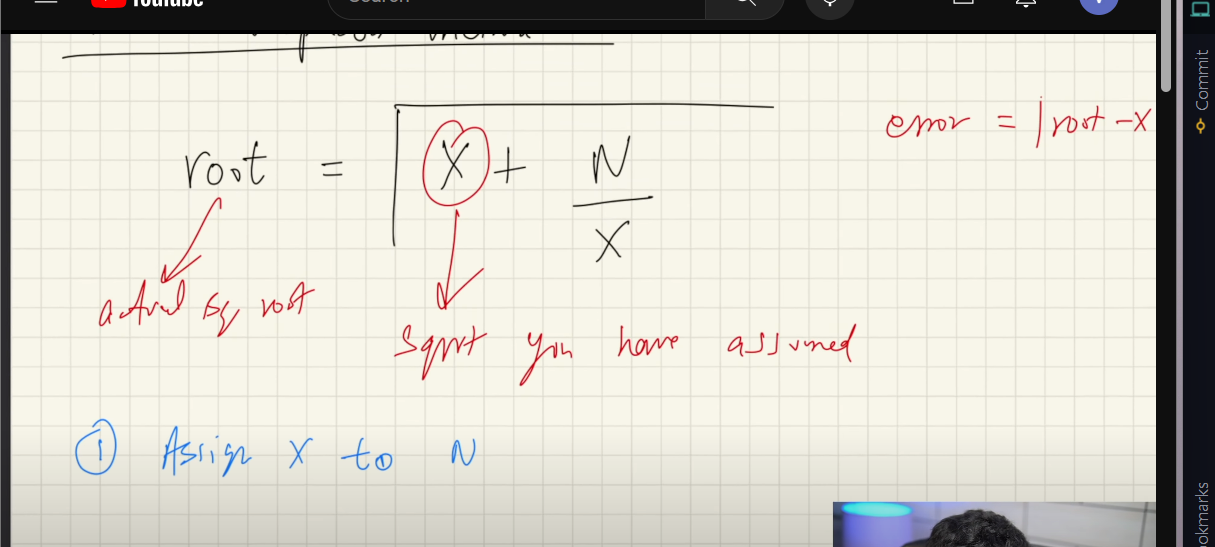 YouTube
Search
V
Method
error = | root - X
root = X + N
X
actual sq root
Sqrrt you have assumed
① Assign X to N
Commit
okmarks